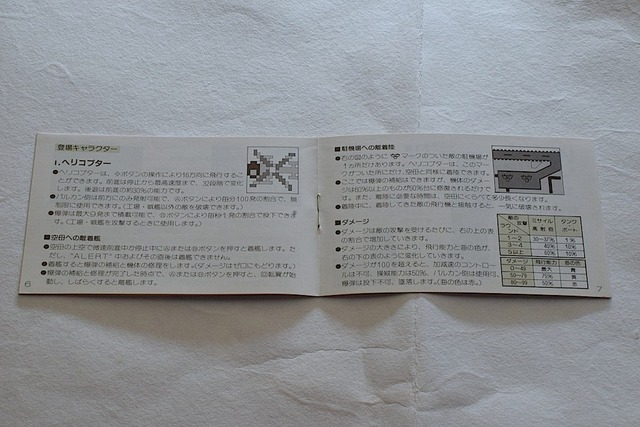 登場キャラクター
1. ヘリコプター
●ヘリコプターは、⊕ボタンの操作により16方向に飛行するこ
とができます。前進は停止から最高速度まで、32段階で変化
します。後退は前進の約30%の能力です。
●バルカン砲は前方にのみ発射可能で、Ⓐボタンにより毎分100発の割合で、無
制限に使用できます。(工場・戦艦以外の敵を破壊できます。)
●爆弾は最大9発まで積載可能で、Ⓑボタンにより毎秒1発の割合で投下できま
す。(工場・戦艦を攻撃するときに使用します。)
■空母への離着艦
●空母の上空で微速前進中か停止中にⒶまたはⒷボタンを押すと着艦します。た
だし、"ALERT"中およびその直後は着艦できません。
●着艦すると爆弾の補給と機体の修理をします。(ダメージはゼロにもどります。)
●爆弾の補給と修理が完了した時点で、ⒶまたはⒷボタンを押すと、回転翼が始
動し、しばらくすると離艦します。
6
■駐機場への離着陸
●右の図のように マークのついた敵の駐機場が
1ヵ所だけあります。ヘリコプターは、このマー
クがついた所にだけ、空母と同様に着陸できます。
●ここでは爆弾の補給はできますが、機体のダメー
ジは60%以上のものが50%台に修復されるだけで
す。また、離陸に必要な時間は、空母にくらべて多少長くなります。
●着陸中に、着陸してきた敵の飛行機と接触すると、一気に破壊されます。
■ダメージ
●ダメージは敵の攻撃を受けるたびに、右の上の表
の割合で増加していきます。
●ダメージの大きさにより、飛行能力と島の色が、
右の下の表のように変化していきます。
●ダメージが100を超えると、加減速のコントロー
ルは不可、操縦能力は50%、バルカン砲は使用可、
爆弾は投下不可、墜落します。(島の色は赤。)
敵の攻撃 ミサイル 高射砲 タンク ボート
ラウンド
1~2 30~37% 1%
3~4 40% 10%
5以上 50% 10%
ダメージ 飛行能力 島の色
0~49 最大 青
50~79
80~99 50% 赤
7